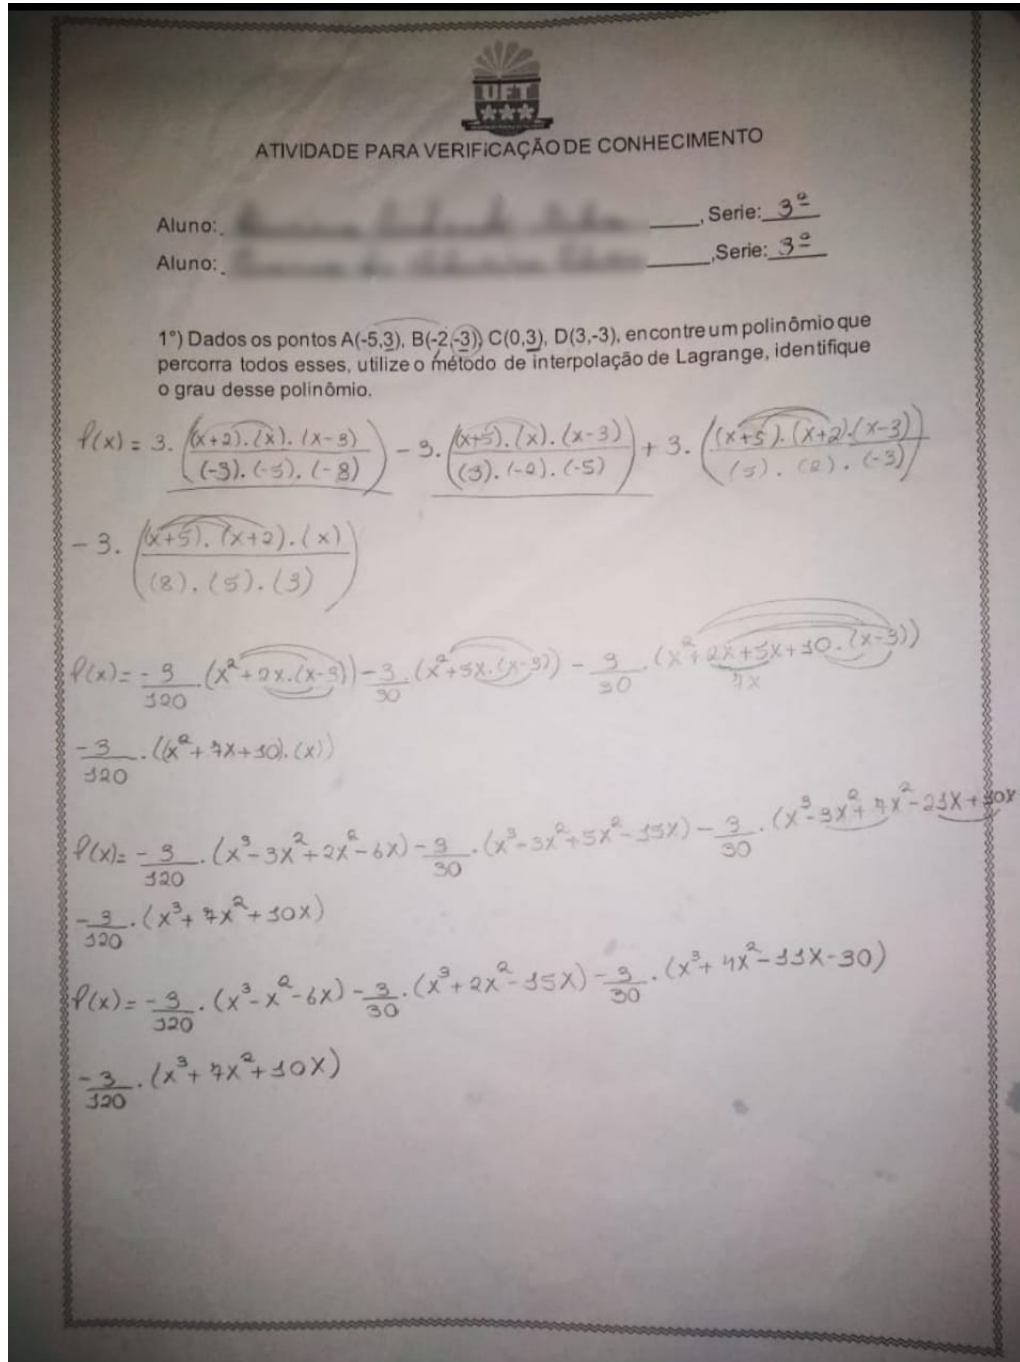 UFT
ATIVIDADE PARA VERIFICAÇÃO DE CONHECIMENTO
Aluno: , Serie: 3ª
Aluno: ,Serie: 3ª
1°) Dados os pontos A(-5,3), B(-2,-3), C(0,3), D(3,-3), encontre um polinômio que
percorra todos esses, utilize o método de interpolação de Lagrange, identifique
o grau desse polinômio.
P(x) = 3. ((x+2).(x).(x-3) / (-3).(-5).(-8)) - 3. ((x+5).(x).(x-3) / (3).(-2).(-5)) + 3. ((x+5).(x+2).(x-3) / (5).(2).(-3))
- 3. ((x+5).(x+2).(x) / (8).(5).(3))
P(x) = -3/120 .(x²+2x.(x-3)) - 3/30 .(x²+5x.(x-3)) - 3/30 .(x²+2x+5x+10.(x-3))
7x
-3/120 .((x²+7x+10).(x))
P(x) = -3/120 .(x³-3x²+2x²-6x) - 3/30 .(x³-3x²+5x²-15x) - 3/30 .(x³-3x²+7x²-21x+10x
-3/120 .(x³+7x²+10x)
P(x) = -3/120 .(x³-x²-6x) - 3/30 .(x³+2x²-15x) - 3/30 .(x³+4x²-11x-30)
-3/120 .(x³+7x²+10x)